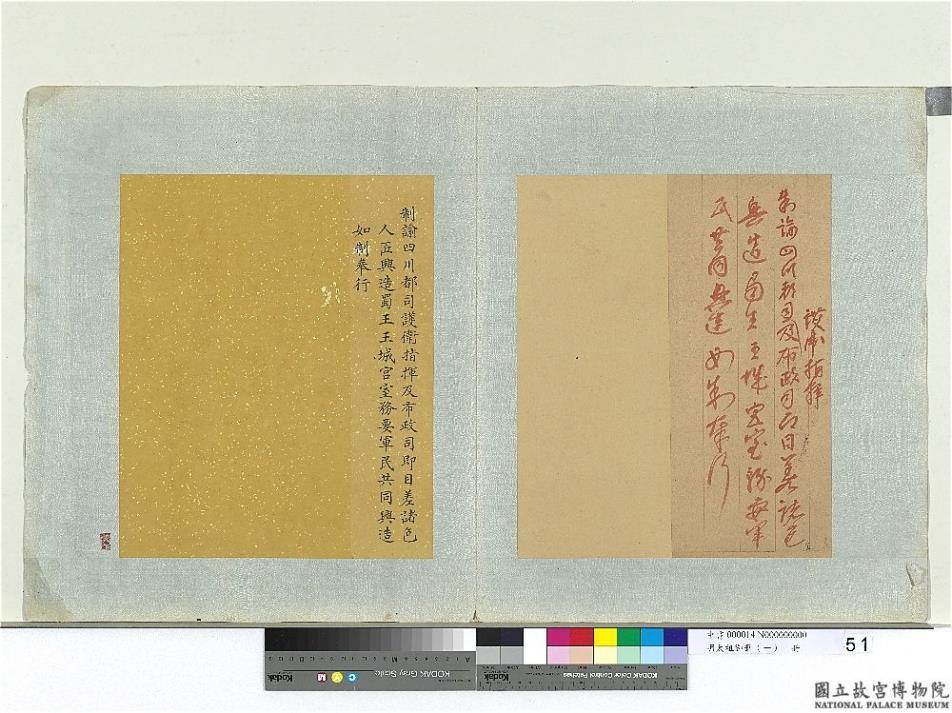 護衛指揮
制諭四川都司及布政司即日差諸色
興造蜀王王城宮室務要軍
民共同興造如制奉行
制諭四川都司護衛指揮及布政司即日差諸色
人匠興造蜀王王城宮室務要軍民共同興造
如制奉行
Kodak
KODAK Gray Scale
C
Y
M
Kodak
KODAK Color Control Patches
000014N000000000
明太祖御筆(一) 冊
51
國立故宮博物院
NATIONAL PALACE MUSEUM